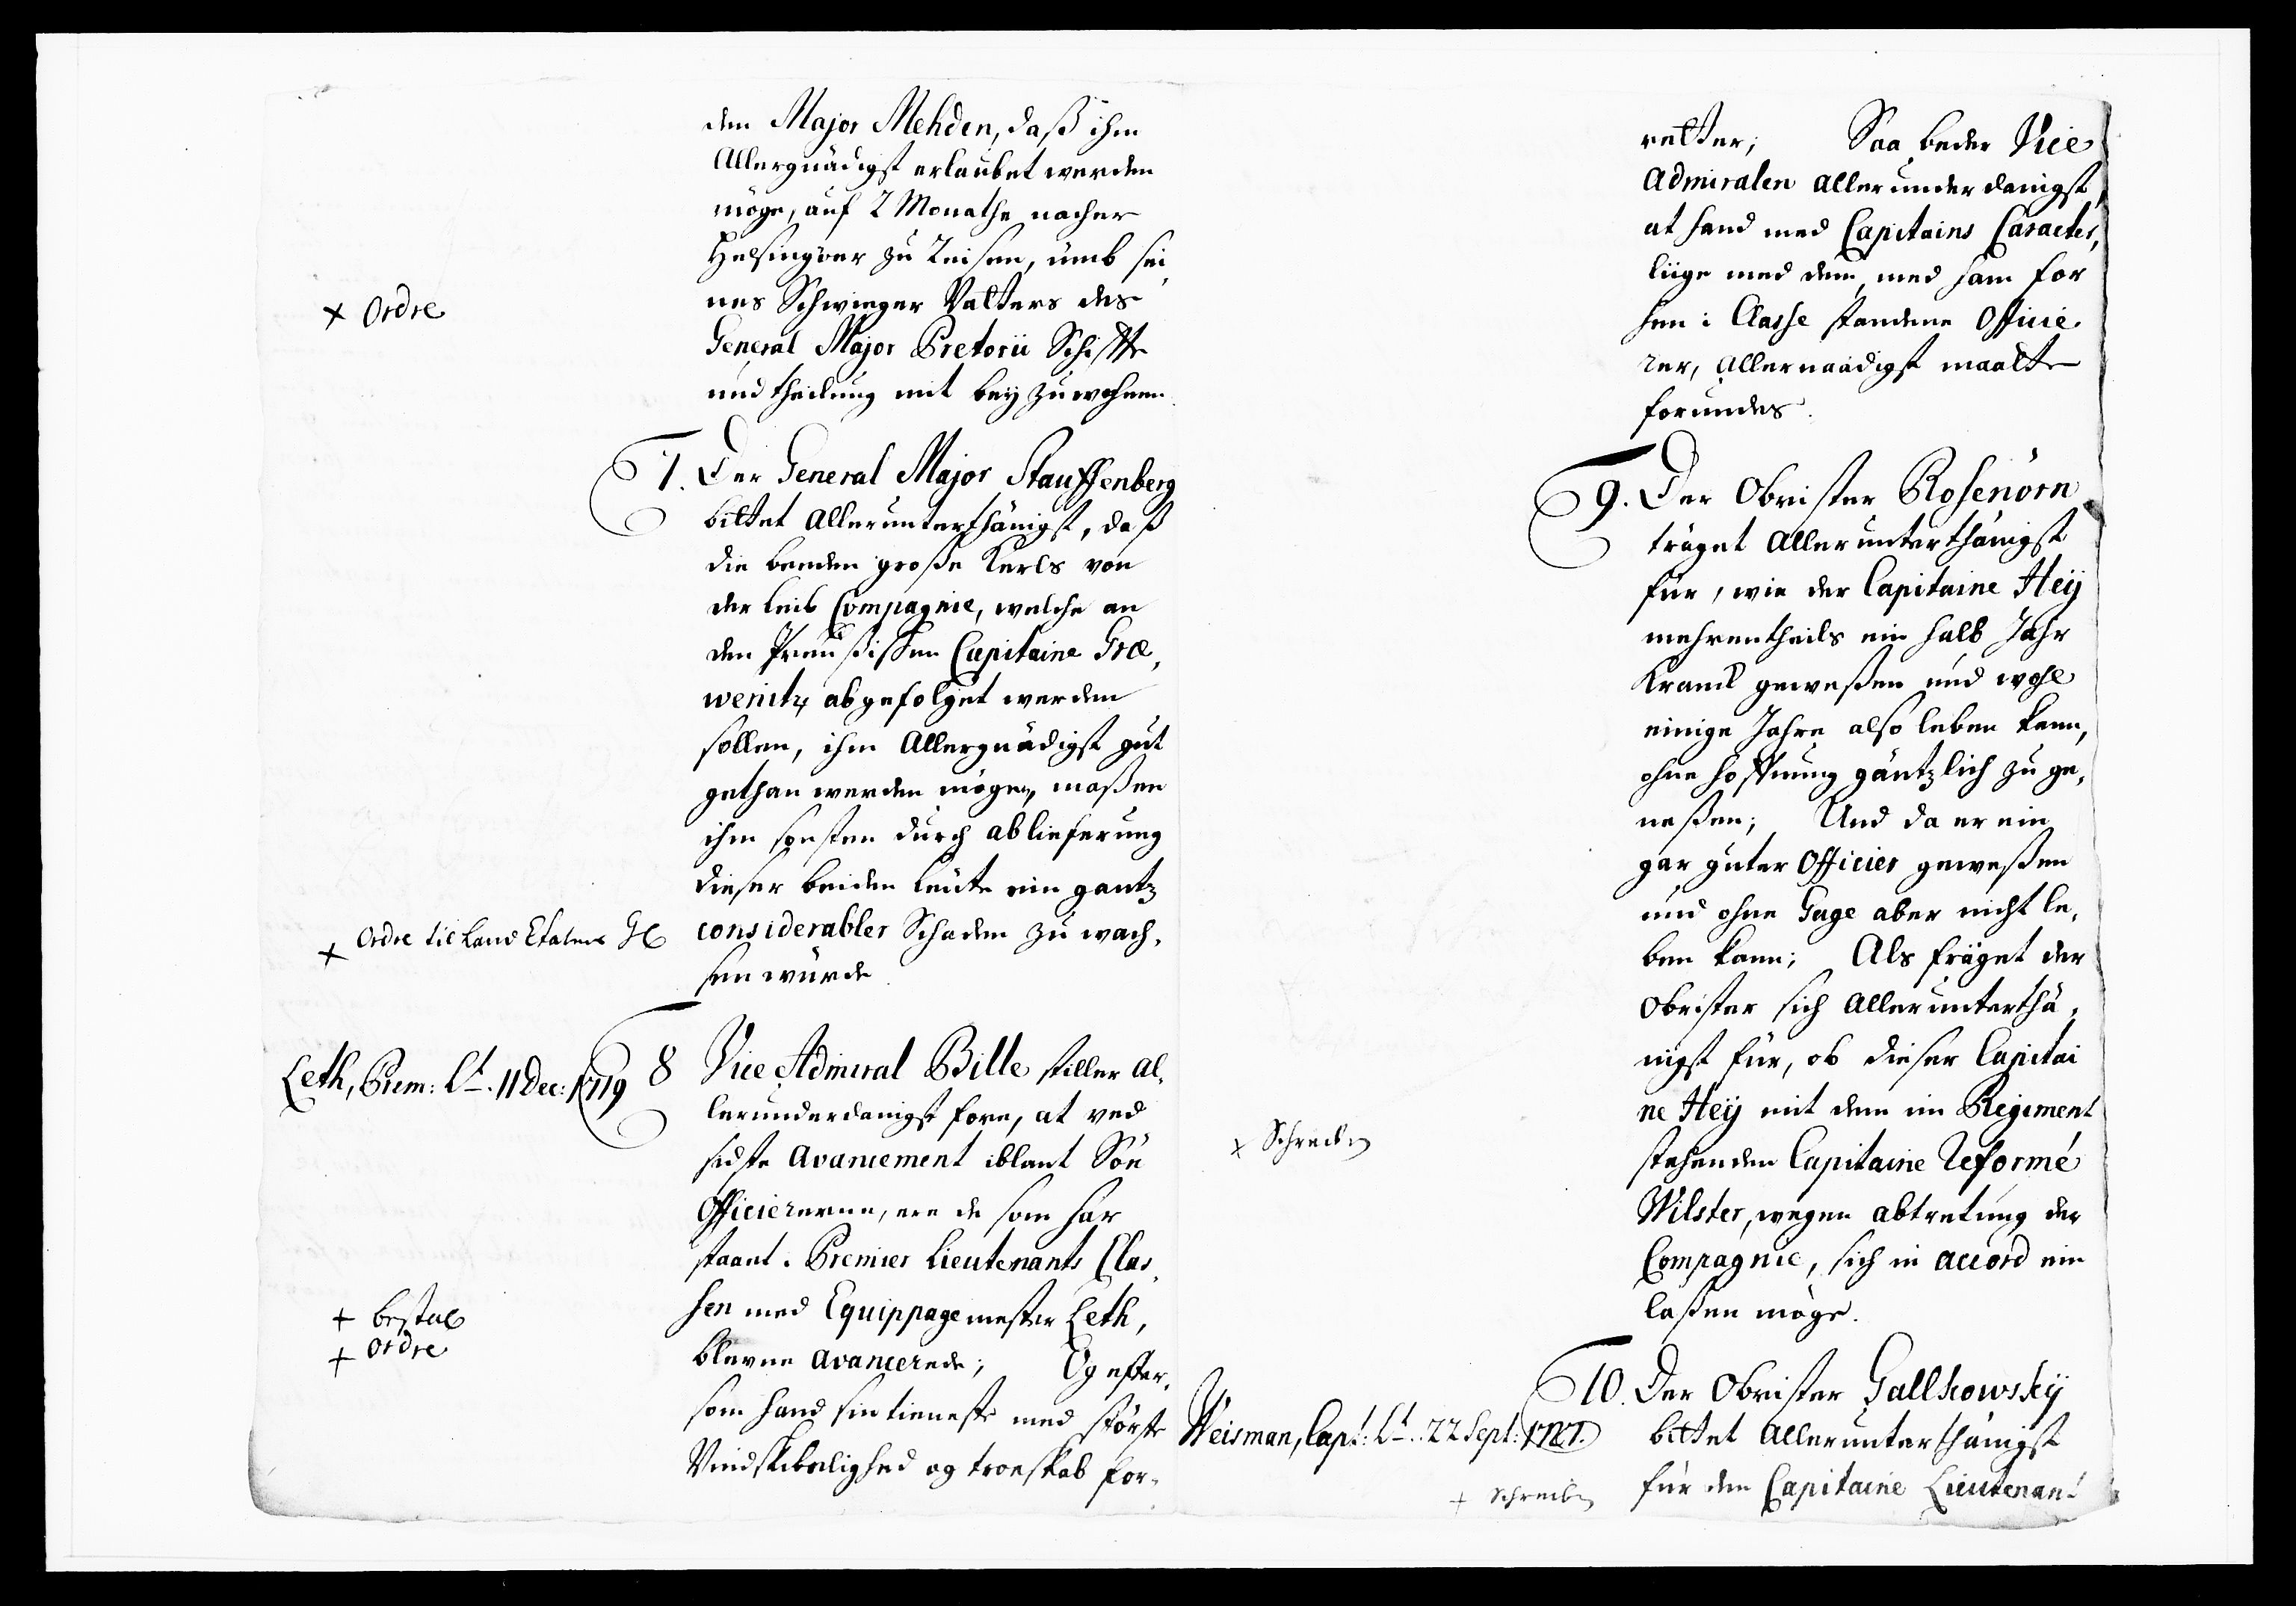 den Major Mehden, daß ihm
Allergnädigst erlaubet werden
möge, auf 2 Monathe nacher
Helsingöer zu Reisen, umb sei,
nes Schwieger Vatters des
× Ordre
General Major Pretorii Schiffte
und theilung mit bey zu wohnen.
7. Der General Major Stauffenberg
bittet Allerunterthänigst, daß
die beeden große Kerls von
der leib Compagnie, welche an
den Preussischen Capitaine Græ,
wenitz abgefolget werden
sollen, ihm Allergnädigst gut
gethan werden mögen, maßen
ihm sonsten durch ablieferung
dieser beiden leute ein gantz
× Ordre til Land Etatens GC
considerabler Schaden zu wach,
sen würde.
Leth, Prem: Lt. 11 Dec: 1719
8 Vice Admiral Bille stiller al,
lerunderdanigst fore, at ved
sidste Avancement iblant Söe
Officiererne, ere de som har
staaet i Premier Lieutenants Clas,
sen med Equippagemester Leth,
+ bestal
+ ordre
blevne avancerede; Og efter,
som hand sin tieneste med störste
Vindskibelighed og troeskab for,
retter; Saa beder Vice
Admiralen allerunderdanigst,
at hand med Capitains Caracter,
liige med dem, med ham for
hen i Classe standene Officie,
rer, allernaadigst maatte
forundes.
9. Der Obrister Rosenörn
träget allerunterthänigst
für, wie der Capitaine Heÿ
mehrentheils ein halb Jahr
Kranck geweßen und wohl
einige Jahre also leben kann,
ohne hoffnung gäntzlich zu ge,
neßen; Und da er ein
gar guter Officier geweßen
und ohne Gage aber nicht le,
ben kann; Als fräget der
Obrister sich allerunterthä,
nigst für, ob dieser Capitai
ne Heÿ mit dem im Regiment
× Schreiben
stehenden Capitaine Reformé
Wilster, wegen abtretung der
Compagnie, sich in accord ein
laßen möge.
10. Der Obrister Gallkowskÿ
Weisman, Capt: Lt. 22 Sept: 1727.
bittet allerunterthänigst
+ Schreiben
für den Capitaine Lieutenant